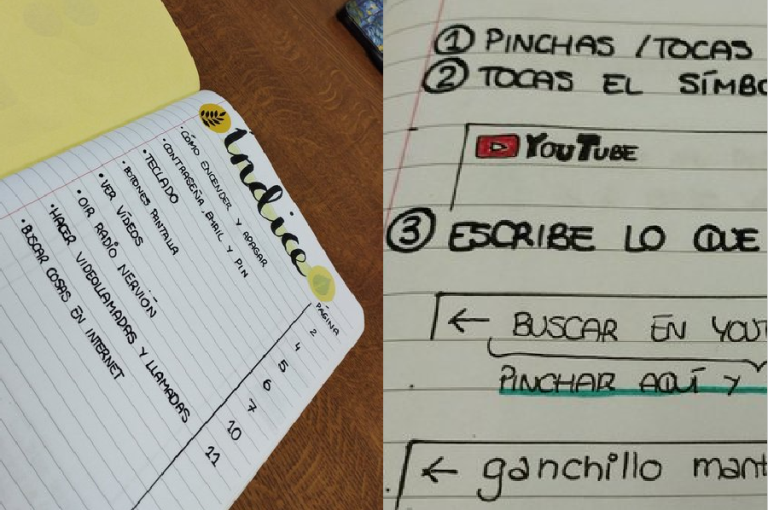 índice
PÁGINA
• CÓMO ENCENDER Y APAGAR 2
• CONTRASEÑA, EMAIL Y PIN 4
• TECLADO 5
• BOTONES PANTALLA 6
• VER VÍDEOS 7
• OIR RADIO NERVIÓN 10
• HACER VIDEOLLAMADAS Y LLAMADAS 11
• BUSCAR COSAS EN INTERNET
① PINCHAS / TOCAS
② TOCAS EL SÍMBO
YOUTUBE
③ ESCRIBE LO QUE
← BUSCAR EN YOUT
PINCHAR AQUÍ Y
← ganchillo mant